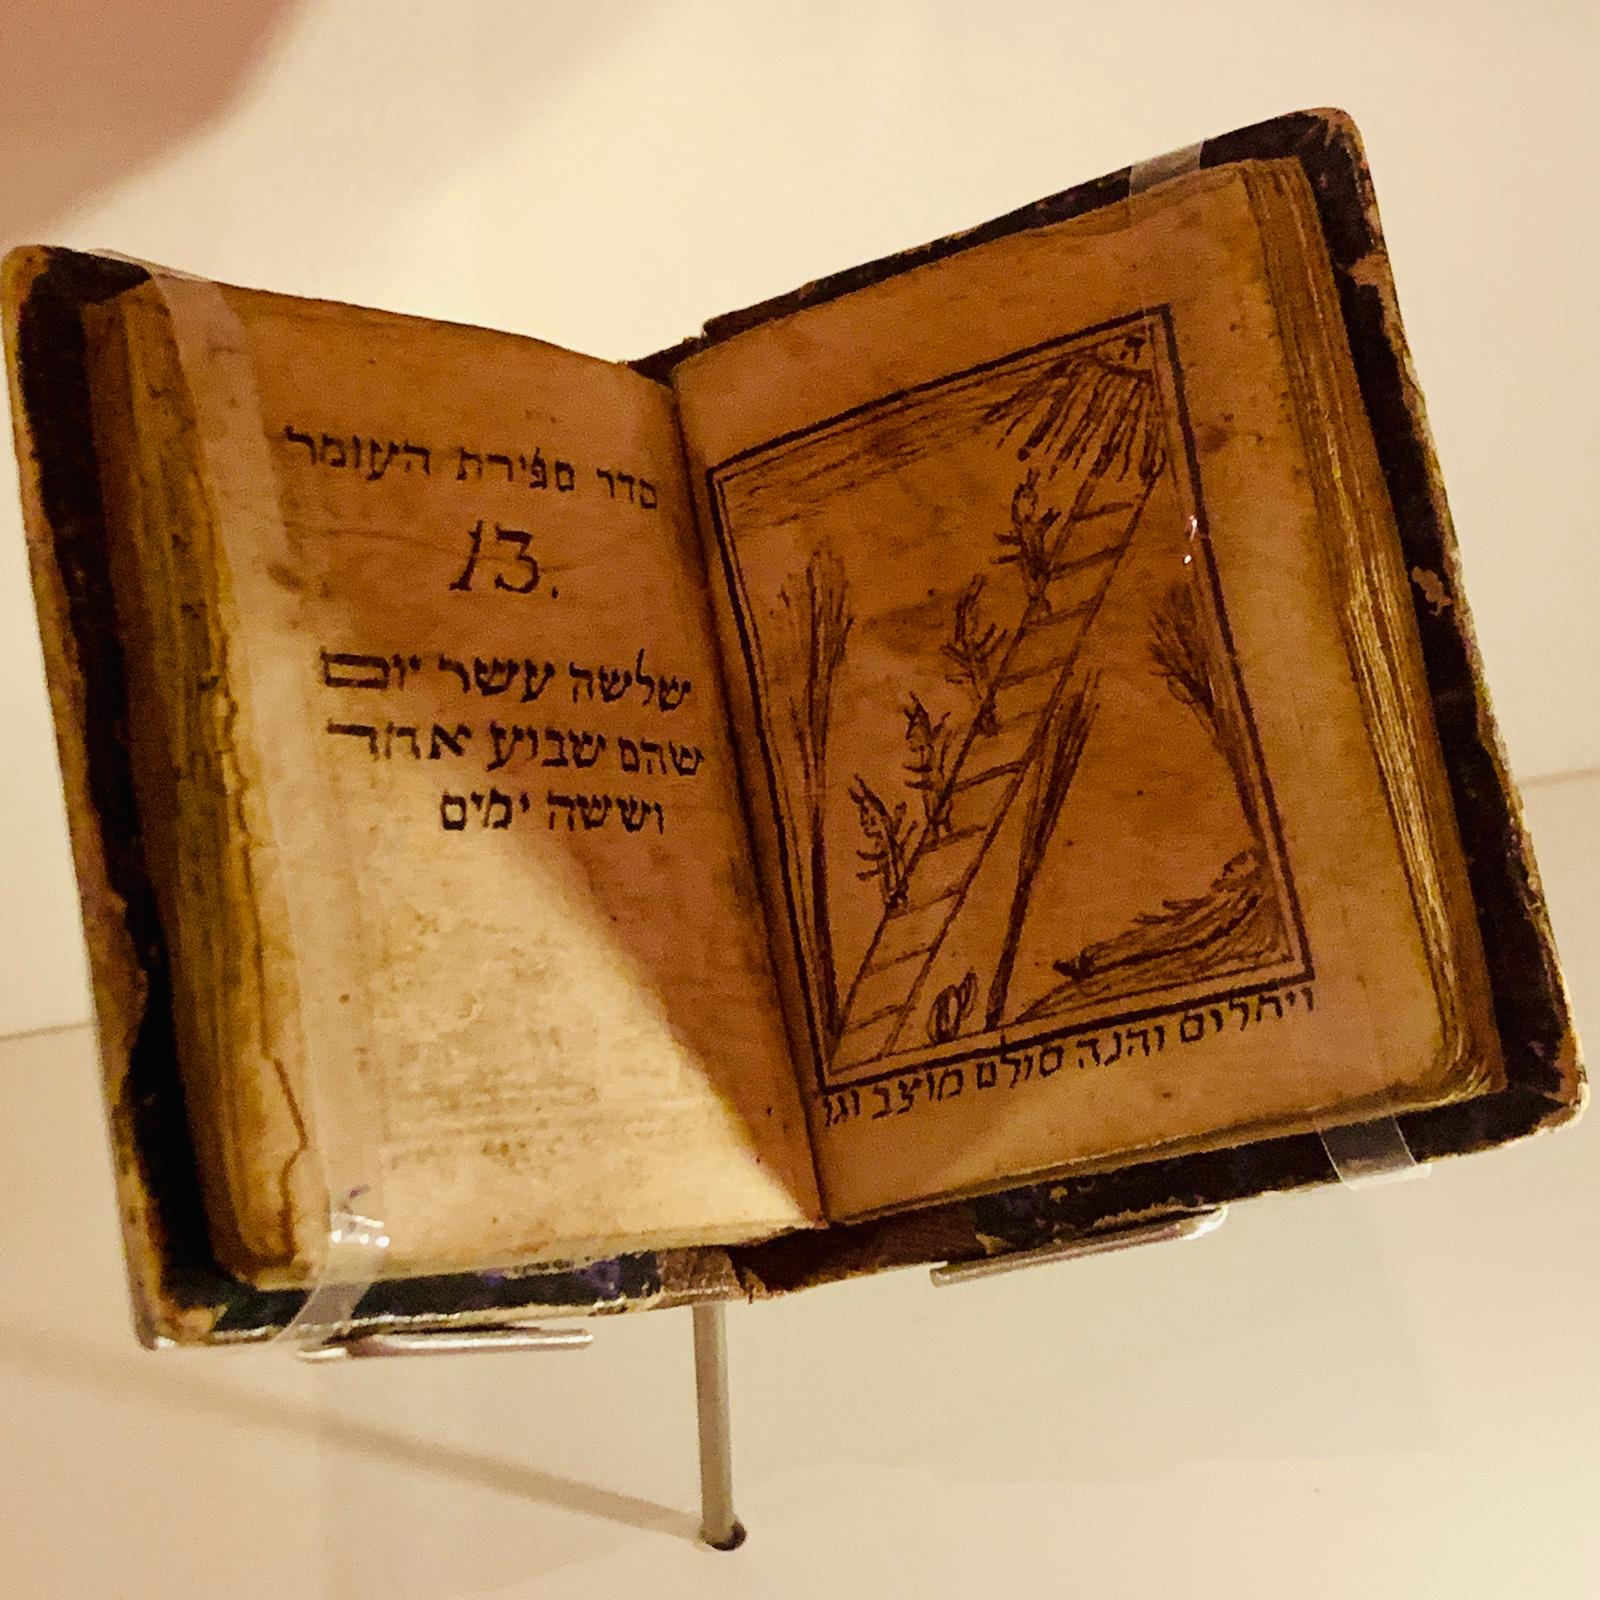 סדר ספירת העומר
13.
שלשה עשר יום
שהם שבוע אחד
וששה ימים
ה
ויחלום והנה סולם מוצב וגו